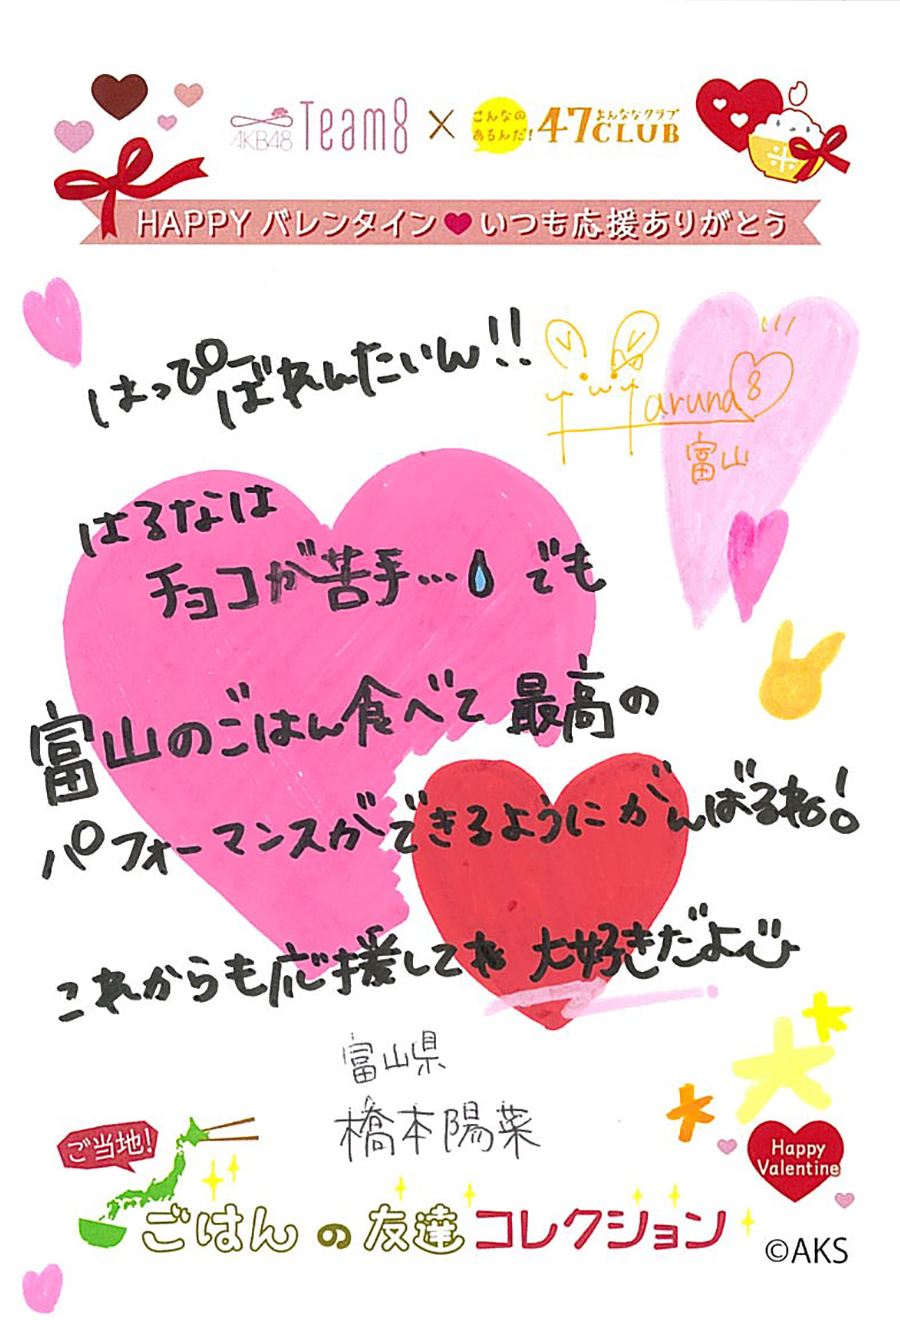 AKB48 Team8 × こんなの あるんだ! 47CLUB よんななクラブ
HAPPY バレンタイン♥いつも応援ありがとう
はっぴーばれんたいん!!
Haruna 8
富山
はるなは
チョコが苦手…でも
富山のごはん食べて最高の
パフォーマンスができるようにがんばるね!
これからも応援してね 大好きだよ
富山県
橋本陽菜
ご当地!
Happy
Valentine
ごはんの友達コレクション
©AKS